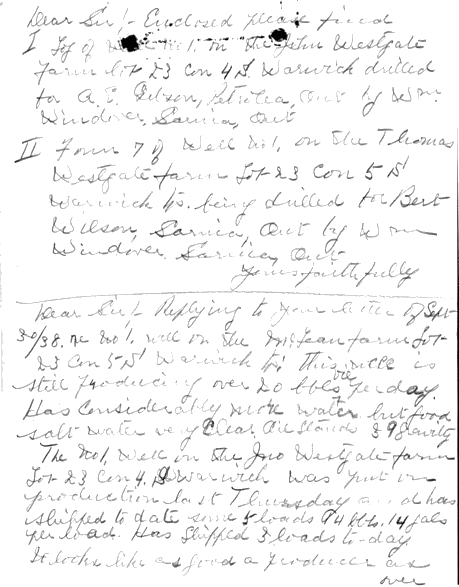 Dear Sir/- Enclosed please find
I Log of Well No 1. on the John Westgate
Farm Lot 23 Con 4 S. Warwick drilled
for A.E. Gibson, Petrolea, Ont by Wm
Windover, Sarnia, Ont
II Form 7 of Well No 1, on the Thomas
Westgate farm Lot 23 Con 5 S
Warwick tp. being drilled for Bert
Wilson, Sarnia, Ont by Wm
Windover, Sarnia, Ont-
Yours faithfully
Dear Sir/- Replying to your letter of Sept
30/38. re No 1. well on the McLean farm Lot-
23 Con 5 S Warwick tp; this well is
still producing over 20 bbls per day.
oil
Has considerably more water, but good
salt water very clear. Oil stands 39 gravity
The No 1. Well on the Jno Westgate farm
Lot 23 Con 4. S Warwick was put on
production last Thursday and has
shipped to date some 5 loads 74 bbls. 14 gals
per load. Has shipped 3 loads to-day
It looks like as good a producer as
over